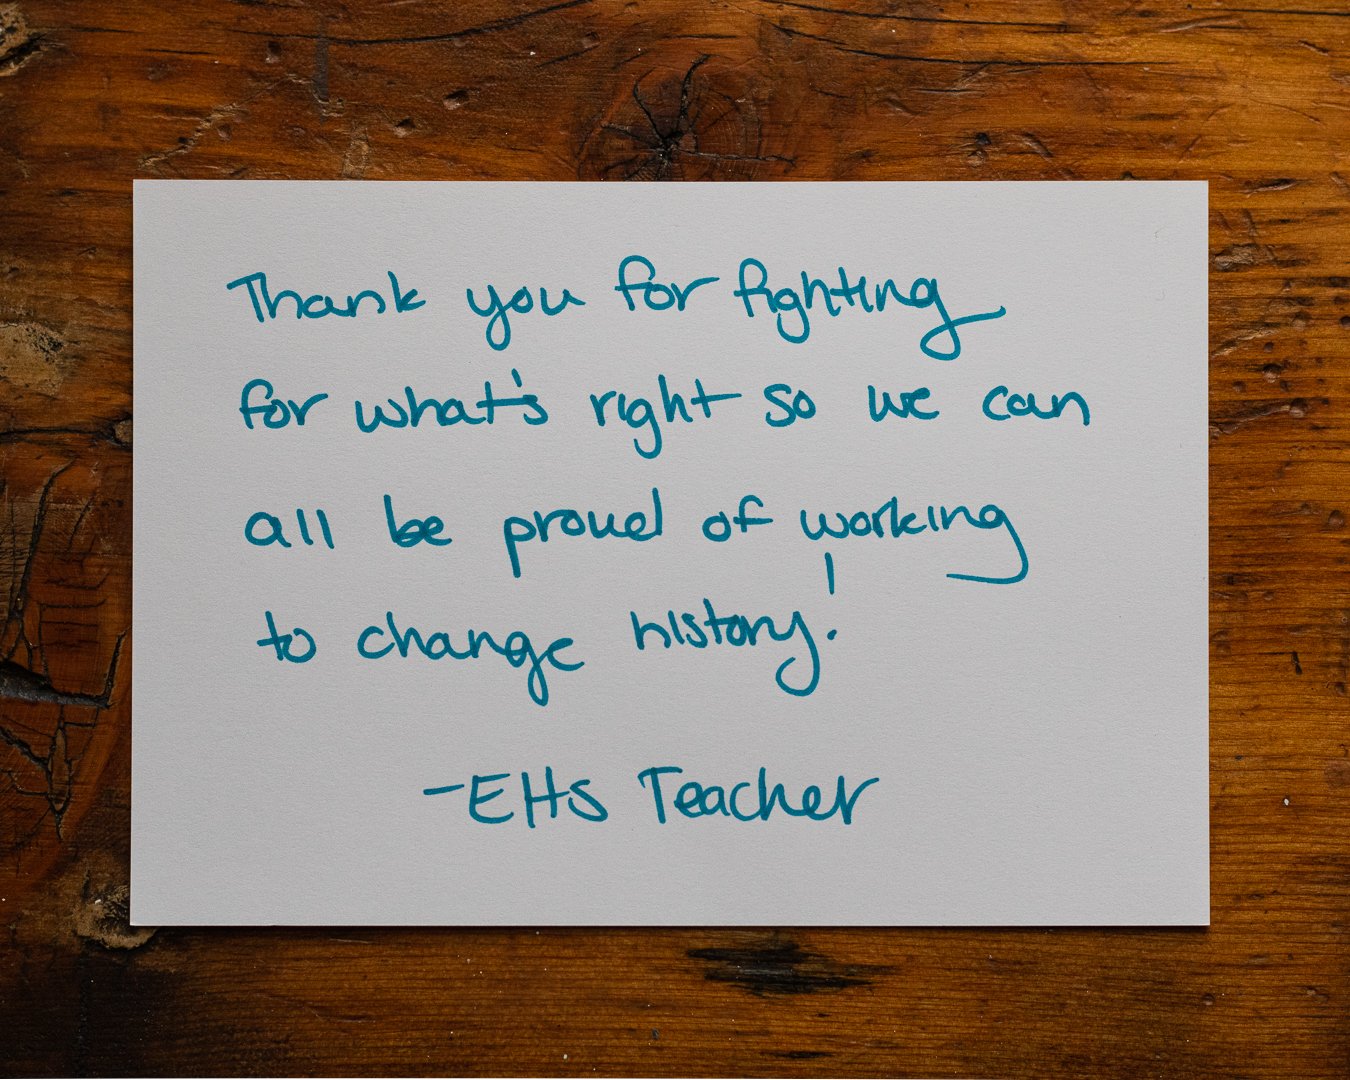 Thank you for fighting
for what's right so we can
all be proud of working
to change history!
-EHS Teacher